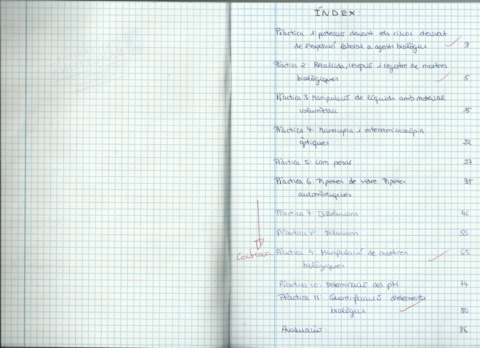 ÍNDEX:
Pràctica 1 protecció davant els riscos derivat
de l'exposició laboral a agents biològics 3
Pràctica 2 Recollida, recepció i registre de mostres
biològiques 5
Pràctica 3 Manipulació de líquids amb material
volumètric 15
Pràctica 4 Microscòpia i estereomicroscòpia
òptiques 22
Pràctica 5: Com pesar 27
Pràctica 6 Pipetes de vidre. Pipetes
automàtiques 35
Pràctica 7 Dissolucions 46
Pràctica 8 Dilucions 55
Pràctica 9 Manipulació de mostres 65
biològiques
Pràctica 10 Determinació del pH 74
Pràctica 11 Quantificació d'elements
biològics 80
Avaluació 86